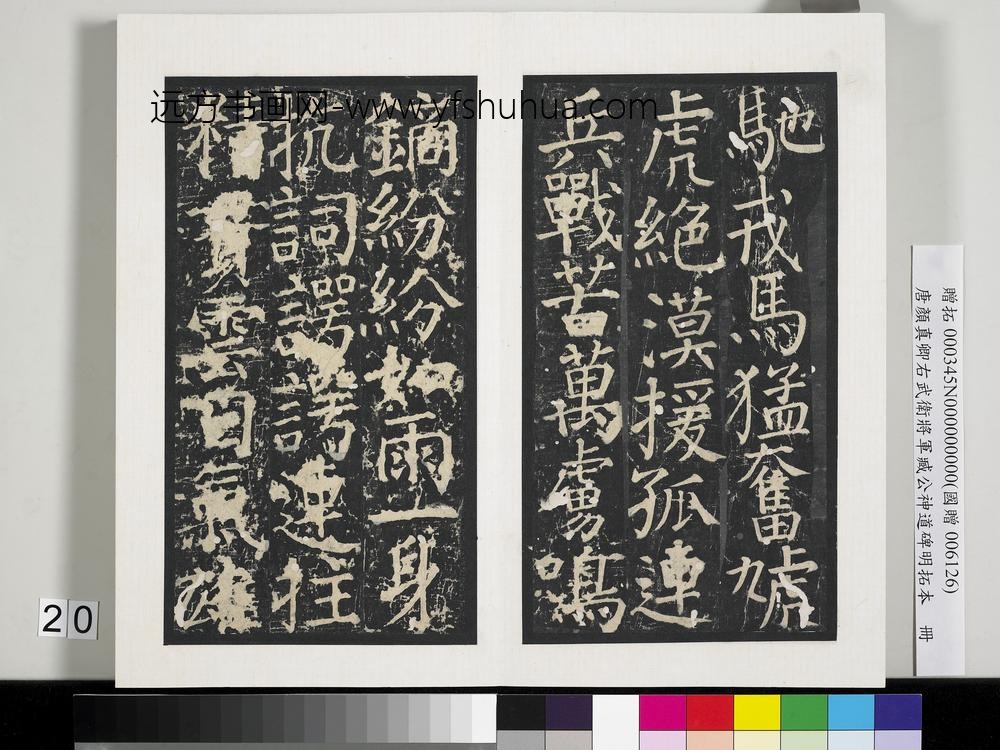 远方书画网-www.yfshuhua.com
馳戎馬猛奮虓
虎絕漠援孤連
兵戰苦萬虜鳴
鏑紛紛如雨一身
抗詞諤諤連拄
精貫雲日氣雄
贈拓 000345N000000000(國贈 006126)
唐顏真卿右武衛將軍臧公神道碑明拓本 冊
20